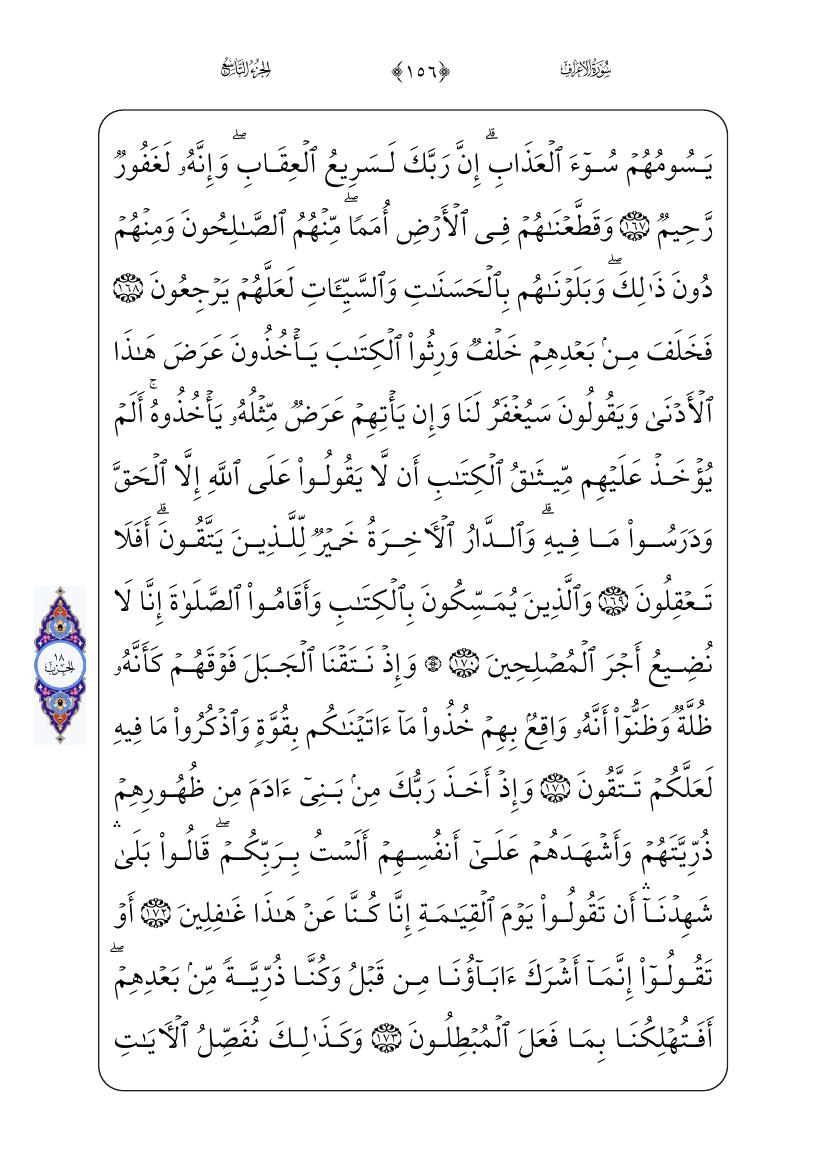 سُورَةُ الأَعْرَافِ ﴿١٥٦﴾ الجُزْءُ التَّاسِعُ
يَسُومُهُمْ سُوٓءَ ٱلْعَذَابِ ۗ إِنَّ رَبَّكَ لَسَرِيعُ ٱلْعِقَابِ ۖ وَإِنَّهُۥ لَغَفُورٌ
رَّحِيمٌ ١٦٧ وَقَطَّعْنَـٰهُمْ فِى ٱلْأَرْضِ أُمَمًا ۖ مِّنْهُمُ ٱلصَّـٰلِحُونَ وَمِنْهُمْ
دُونَ ذَٰلِكَ ۖ وَبَلَوْنَـٰهُم بِٱلْحَسَنَـٰتِ وَٱلسَّيِّـَٔاتِ لَعَلَّهُمْ يَرْجِعُونَ ١٦٨
فَخَلَفَ مِنۢ بَعْدِهِمْ خَلْفٌ وَرِثُوا۟ ٱلْكِتَـٰبَ يَأْخُذُونَ عَرَضَ هَـٰذَا
ٱلْأَدْنَىٰ وَيَقُولُونَ سَيُغْفَرُ لَنَا وَإِن يَأْتِهِمْ عَرَضٌ مِّثْلُهُۥ يَأْخُذُوهُ ۚ أَلَمْ
يُؤْخَذْ عَلَيْهِم مِّيثَـٰقُ ٱلْكِتَـٰبِ أَن لَّا يَقُولُوا۟ عَلَى ٱللَّهِ إِلَّا ٱلْحَقَّ
وَدَرَسُوا۟ مَا فِيهِ ۗ وَٱلدَّارُ ٱلْـَٔاخِرَةُ خَيْرٌ لِّلَّذِينَ يَتَّقُونَ ۗ أَفَلَا
تَعْقِلُونَ ١٦٩ وَٱلَّذِينَ يُمَسِّكُونَ بِٱلْكِتَـٰبِ وَأَقَامُوا۟ ٱلصَّلَوٰةَ إِنَّا لَا
نُضِيعُ أَجْرَ ٱلْمُصْلِحِينَ ١٧٠ ۞ وَإِذْ نَتَقْنَا ٱلْجَبَلَ فَوْقَهُمْ كَأَنَّهُۥ
١٨ الحزب
ظُلَّةٌ وَظَنُّوٓا۟ أَنَّهُۥ وَاقِعٌۢ بِهِمْ خُذُوا۟ مَآ ءَاتَيْنَـٰكُم بِقُوَّةٍ وَٱذْكُرُوا۟ مَا فِيهِ
لَعَلَّكُمْ تَتَّقُونَ ١٧١ وَإِذْ أَخَذَ رَبُّكَ مِنۢ بَنِىٓ ءَادَمَ مِن ظُهُورِهِمْ
ذُرِّيَّتَهُمْ وَأَشْهَدَهُمْ عَلَىٰٓ أَنفُسِهِمْ أَلَسْتُ بِرَبِّكُمْ ۖ قَالُوا۟ بَلَىٰ ۛ
شَهِدْنَآ ۛ أَن تَقُولُوا۟ يَوْمَ ٱلْقِيَـٰمَةِ إِنَّا كُنَّا عَنْ هَـٰذَا غَـٰفِلِينَ ١٧٢ أَوْ
تَقُولُوٓا۟ إِنَّمَآ أَشْرَكَ ءَابَآؤُنَا مِن قَبْلُ وَكُنَّا ذُرِّيَّةً مِّنۢ بَعْدِهِمْ ۖ
أَفَتُهْلِكُنَا بِمَا فَعَلَ ٱلْمُبْطِلُونَ ١٧٣ وَكَذَٰلِكَ نُفَصِّلُ ٱلْـَٔايَـٰتِ